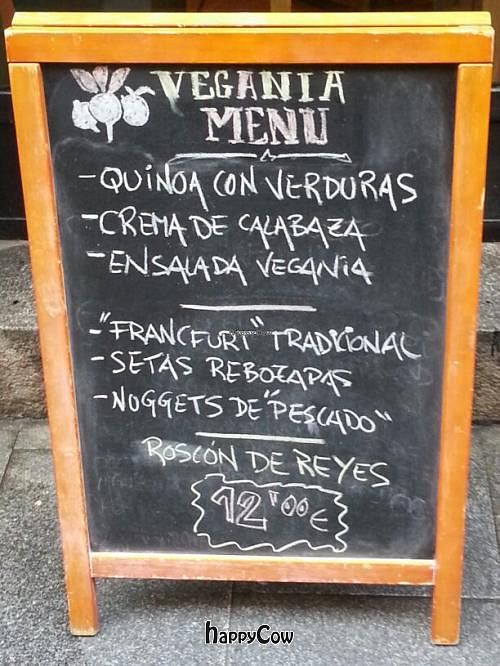 VEGANIA
MENU
-QUINOA CON VERDURAS
-CREMA DE CALABAZA
-ENSALADA VEGANIA
-"FRANCFURT" TRADICIONAL
-SETAS REBOZADAS
-NOGGETS DE "PESCADO"
ROSCÓN DE REYES
12'00€
happyCow